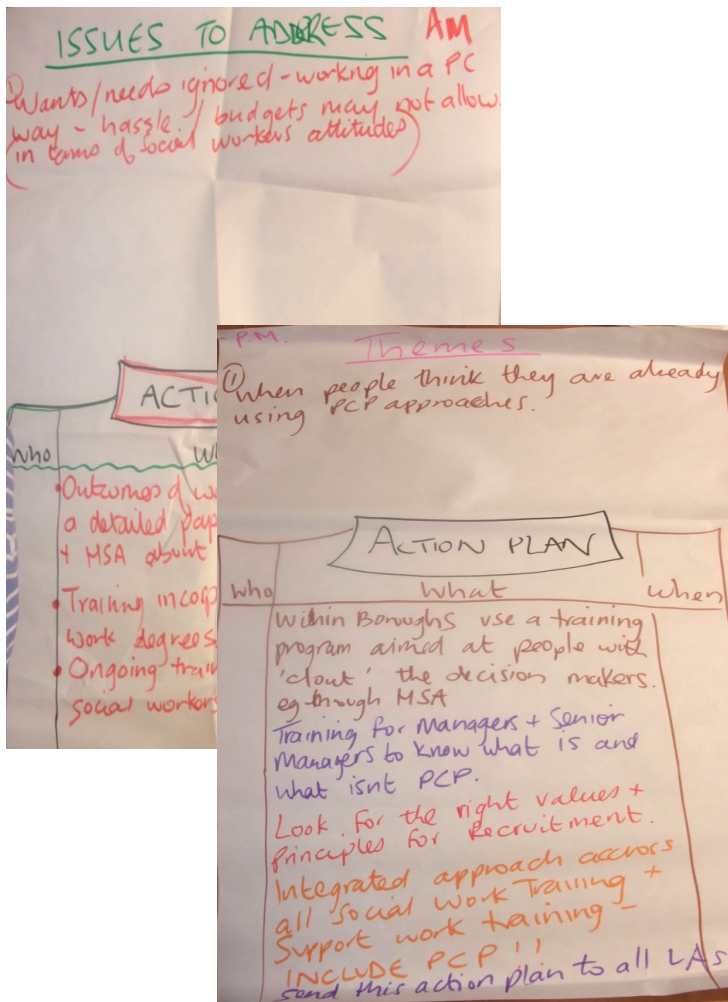 ISSUES TO ADDRESS AM
① Wants/needs ignored - working in a PC
way - hassle / budgets may not allow.
(in terms of social workers attitudes)
ACTI
who
Outcomes of
a detailed
+ MSA about
• Training
work degrees
• Ongoing
social workers
P.M.
Themes
① When people think they are already
using PCP approaches.
ACTION PLAN
who what when
Within Boroughs use a training
program aimed at people with
'clout' the decision makers.
eg through MSA
Training for Managers + Senior
Managers to know what is and
what isnt PCP.
Look for the right values +
Principles for Recruitment.
Integrated approach accross
all Social Work Training +
Support work training -
INCLUDE PCP !!
send this action plan to all LAs